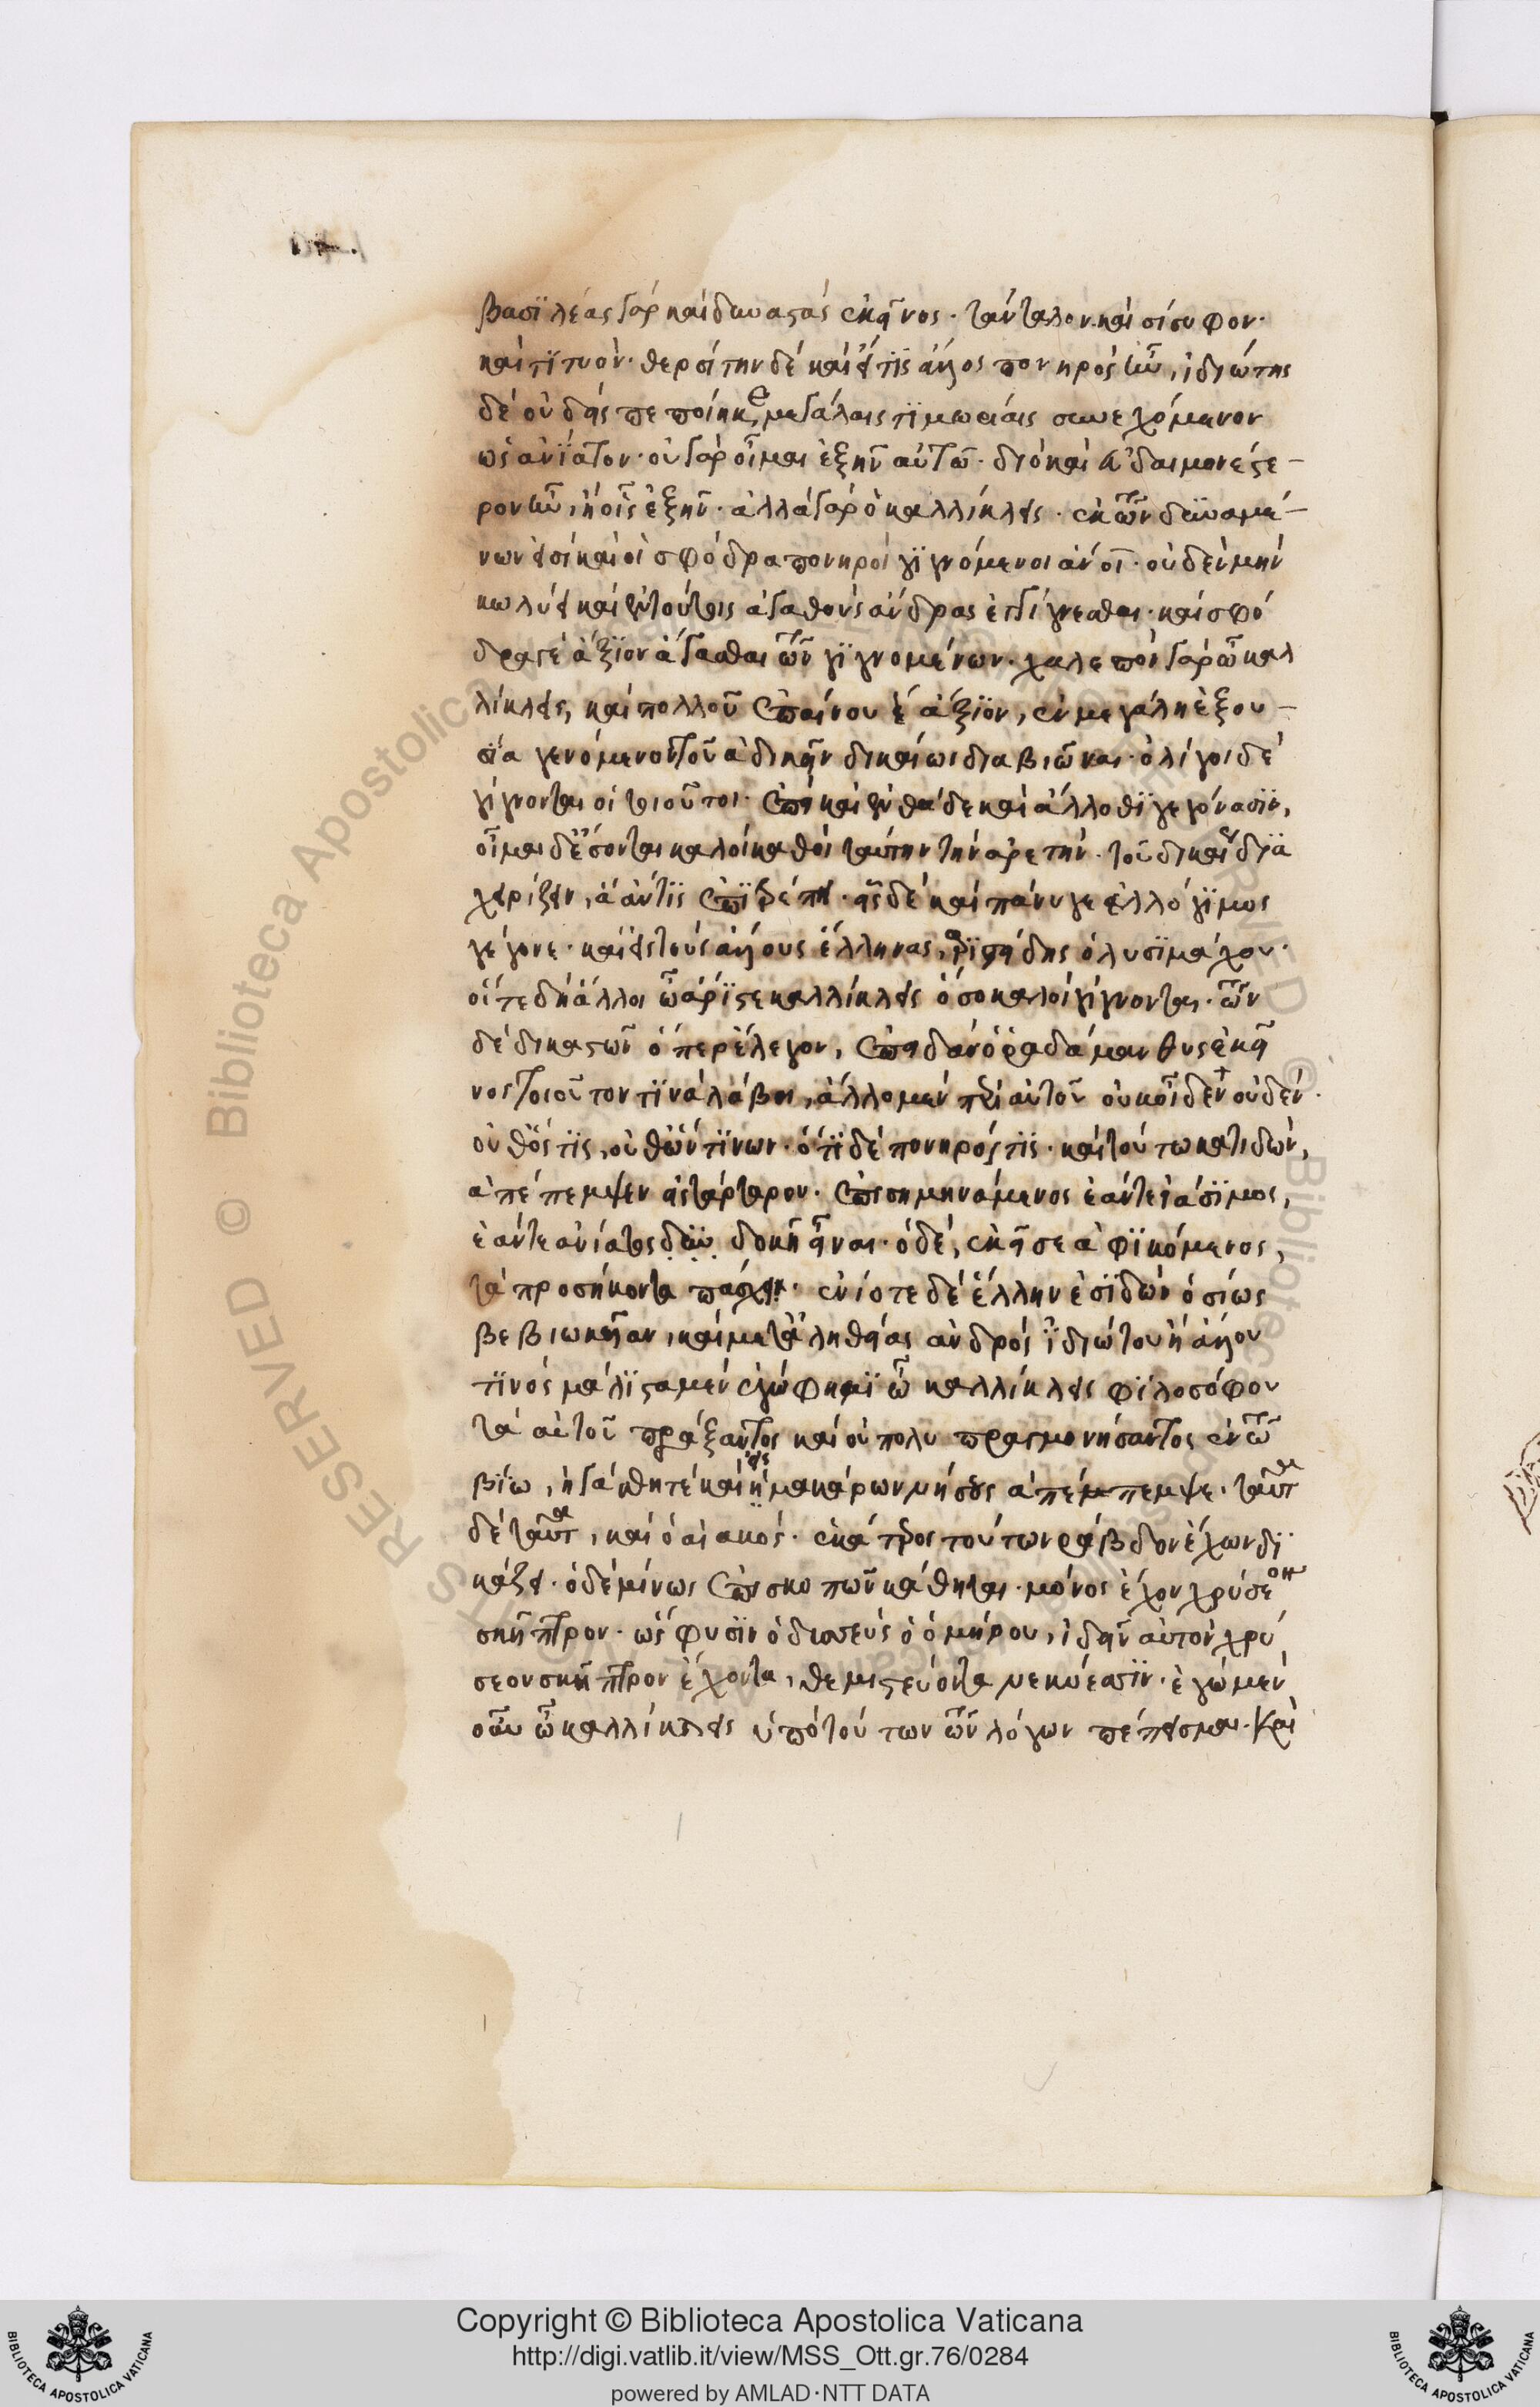 βασϊλέας γὰρ καὶ δυνάστας ἐκεῖνος· τάνταλον· καὶ σίσυφον·
καὶ τϊτυόν· θερσίτην δὲ καὶ εἴ τϊς ἄλλος πονηρὸς ἦν, ἰδιώτης
δὲ οὐδεὶς πεποίηκε, μεγάλαις τϊμωρίαις συνεχόμενον
ὡς ἀνΐατον· οὐ γὰρ οἶμαι ἐξῆν αὐτῶ· διὸ καὶ εὐδαιμονέστε-
ρον ἦν, ἢ οἷς ἐξῆν· ἀλλὰ γὰρ ὁ καλλίκλεις· ἐκ τῶν δυναμέ-
νων εἰσὶ καὶ οἱ σφόδρα πονηροὶ γϊγνόμενοι ἄνοι· οὐδὲν μὴν
κωλύει καὶ ἐν τούτοις ἀγαθοὺς ἄνδρας ἐγγίγνεσθαι· καὶ σφό
δρα γε ἄξϊον ἄγασθαι τῶν γϊγνομένων· χαλεπὸν γὰρ ὦ καλ
λίκλεις, καὶ πολλοῦ ἐπαίνου ἄξϊον, ἐν μεγάλη ἐξου-
σία γενόμενον τοῦ ἀδικεῖν δικαίως διαβιῶναι· ὀλίγοι δὲ
γίγνονται οἱ τοιοῦτοι· ἐπεὶ καὶ ἐνθάδε καὶ ἄλλοθϊ γεγόνασϊν,
οἶμαι δ' ἔσονται καλοὶ κἀγαθοὶ ταύτην τὴν ἀρετὴν· τοῦ δικαίως διὰ
χειρίζειν, ἃ ἄν τϊς ἐπϊτρέπη· εἷς δὲ καὶ πάνυ γε ἐλλόγϊμος
γέγονε· καὶ εἰς τοὺς ἄλλους ἕλληνας, ἀρϊστείδης ὁ λυσϊμάχου·
οἵ τε δὴ ἄλλοι ὦ ἄρϊστε καλλίκλεις ὅσοι καλοὶ γίγνονται· τῶν
δὲ δικαστῶν ὅπερ ἔλεγον, ἐπειδὰν ὁ ῥαδάμανθυς ἐκεῖ
νος τοιοῦτον τϊνὰ λάβοι, ἄλλο μὲν περὶ αὐτοῦ οὐκ οἶδεν οὐδέν·
οὔθ' ὅστϊς, οὔθ' ὧν τϊνων· ὅτϊ δὲ πονηρός τϊς· καὶ τοῦτο κατιδὼν,
ἀπέπεμψεν εἰς τάρταρον· ἐπισημηνάμενος ἐάν τε ἰάσϊμος,
ἐάν τε ἀνίατος δοκῆ εἶναι· ὁ δὲ, ἐκεῖσε ἀφϊκόμενος,
τὰ προσήκοντα πάσχει· ἐνίοτε δὲ ἕλλην ἐσϊδὼν ὁσίως
βεβιωκυῖαν, καὶ μετ' ἀληθείας ἀνδρὸς ἰδιώτου ἢ ἄλλου
τϊνὸς μάλϊστα μὲν ἐγώ φημϊ ὦ καλλίκλεις φϊλοσόφου
τὰ αὑτοῦ πράξαντος καὶ οὐ πολυπραγμονήσαντος ἐν τῶ
βίω, ἠγάσθη τε καὶ εἰς μακάρων νήσους ἀπέμπεμψε· ταῦτα
δὲ ταῦτα, καὶ ὁ αἰακός· ἑκάτερος τούτων ῥάβδον ἔχων δϊ
κάζει· ὁ δὲ μίνως ἐπισκοπῶν κάθηται· μόνος ἔχον χρύσεον
σκῆπτρον· ὥς φυσϊν ὀδυσσεὺς ὁ ὁμήρου, ἰδεῖν αὐτὸν χρύ
σεον σκῆπτρον ἔχοντα, θεμιστεύοντα νεκύεσσϊν· ἐγὼ μὲν
οὖν ὦ καλλίκλεις ὑπὸ τούτων τῶν λόγων πέπεισμαι· καὶ
Copyright © Biblioteca Apostolica Vaticana
http://digi.vatlib.it/view/MSS_Ott.gr.76/0284
powered by AMLAD·NTT DATA